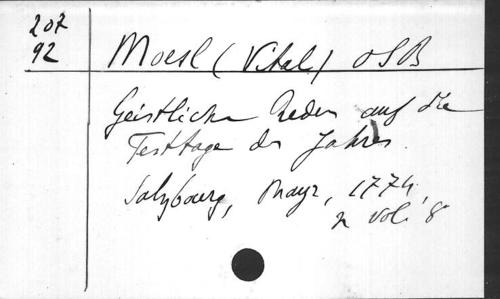 207
92
Moesl (Vital) OSB
Geistliche Reden auf die
Festtage des Jahres.
Salzbourg, Mayr, 1774,
2 vol. 8